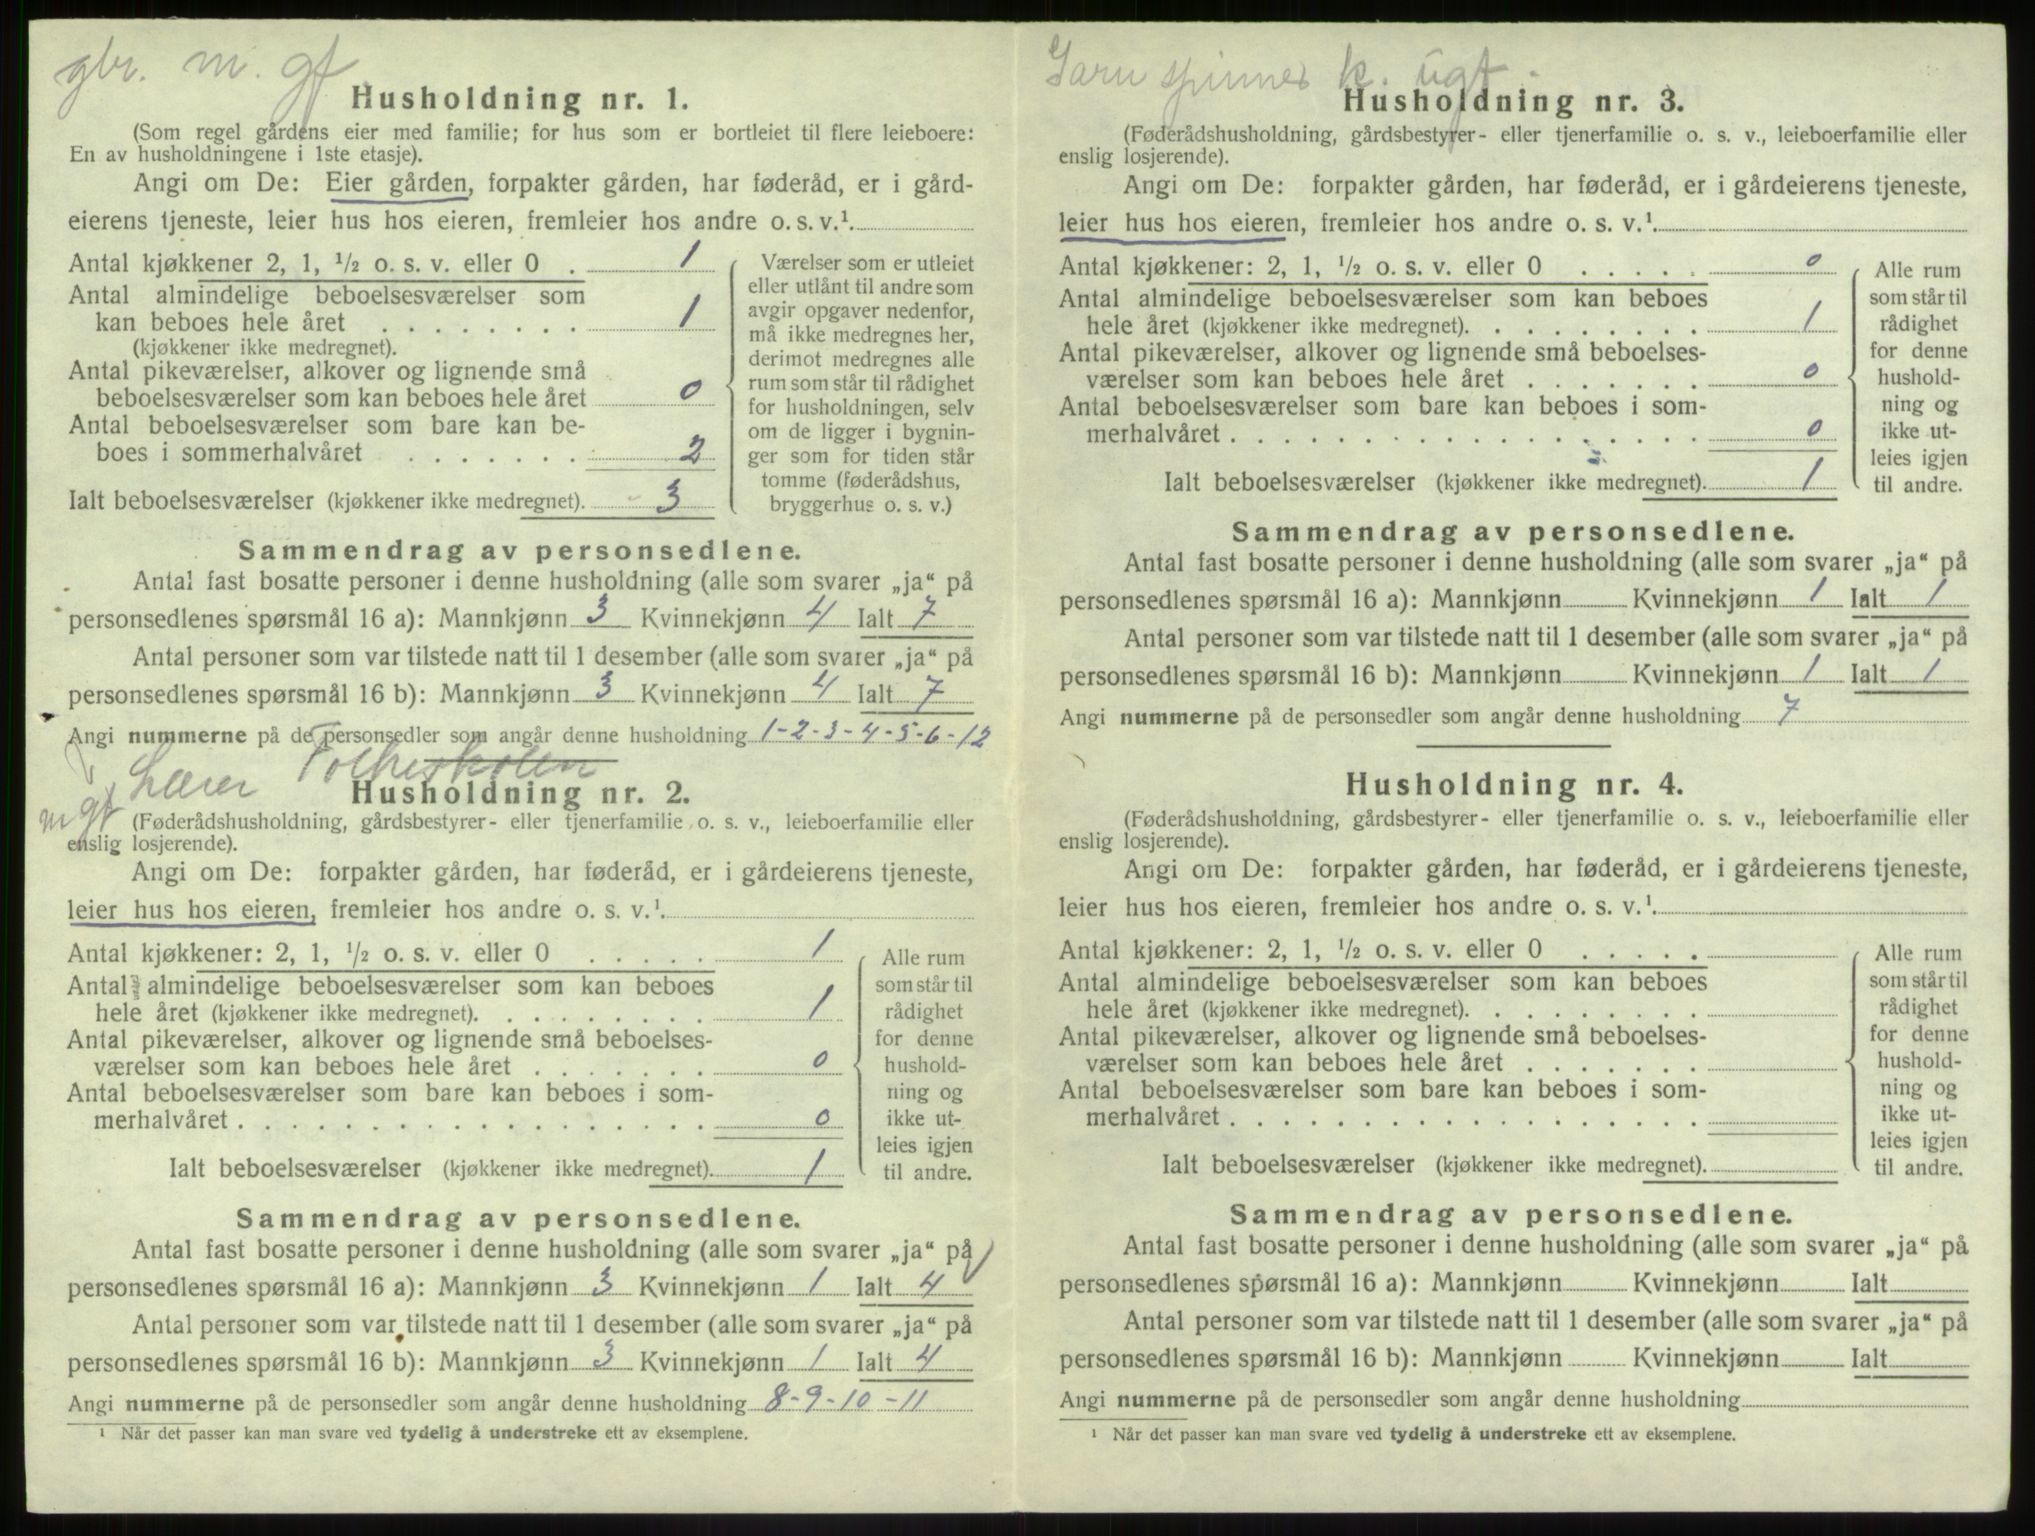 gbr. m. gf
Husholdning nr. 1.
(Som regel gårdens eier med familie; for hus som er bortleiet til flere leieboere:
En av husholdningene i 1ste etasje).
Angi om De: Eier gården, forpakter gården, har føderåd, er i gård-
eierens tjeneste, leier hus hos eieren, fremleier hos andre o. s. v.¹
Antal kjøkkener 2, 1, ½ o. s. v. eller 0 . 1
Antal almindelige beboelsesværelser som
kan beboes hele året . . . . . . . . 1
(kjøkkener ikke medregnet).
Antal pikeværelser, alkover og lignende små
beboelsesværelser som kan beboes hele året 0
Antal beboelsesværelser som bare kan be-
boes i sommerhalvåret . . . . . . . 2
Ialt beboelsesværelser (kjøkkener ikke medregnet). 3
Værelser som er utleiet
eller utlånt til andre som
avgir opgaver nedenfor,
må ikke medregnes her,
derimot medregnes alle
rum som står til rådighet
for husholdningen, selv
om de ligger i bygnin-
ger som for tiden står
tomme (føderådshus,
bryggerhus o. s. v.)
Sammendrag av personsedlene.
Antal fast bosatte personer i denne husholdning (alle som svarer „ja“ på
personsedlenes spørsmål 16 a): Mannkjønn 3 Kvinnekjønn 4 Ialt 7
Antal personer som var tilstede natt til 1 desember (alle som svarer „ja“ på
personsedlenes spørsmål 16 b): Mannkjønn 3 Kvinnekjønn 4 Ialt 7
Angi nummerne på de personsedler som angår denne husholdning 1-2-3-4-5-6-12
Lærer Folkeskolen
m gf
Husholdning nr. 2.
(Føderådshusholdning, gårdsbestyrer- eller tjenerfamilie o. s. v., leieboerfamilie eller
enslig losjerende).
Angi om De: forpakter gården, har føderåd, er i gårdeierens tjeneste,
leier hus hos eieren, fremleier hos andre o. s. v.¹
Antal kjøkkener: 2, 1, ½ o. s. v. eller 0 . . . . . 1
Antal almindelige beboelsesværelser som kan beboes
hele året (kjøkkener ikke medregnet). . . . . . . . . 1
Antal pikeværelser, alkover og lignende små beboelses-
værelser som kan beboes hele året . . . . . . . 0
Antal beboelsesværelser som bare kan beboes i som-
merhalvåret . . . . . . . . . . . . . . . . . . 0
Ialt beboelsesværelser (kjøkkener ikke medregnet). 1
Alle rum
som står til
rådighet
for denne
hushold-
ning og
ikke ut-
leies igjen
til andre.
Sammendrag av personsedlene.
Antal fast bosatte personer i denne husholdning (alle som svarer „ja“ på
personsedlenes spørsmål 16 a): Mannkjønn 3 Kvinnekjønn 1 Ialt 4
Antal personer som var tilstede natt til 1 desember (alle som svarer „ja“ på
personsedlenes spørsmål 16 b): Mannkjønn 3 Kvinnekjønn 1 Ialt 4
Angi nummerne på de personsedler som angår denne husholdning 8-9-10-11
¹ Når det passer kan man svare ved tydelig å understreke ett av eksemplene.
Garn spinner k. ugt.
Husholdning nr. 3.
(Føderådshusholdning, gårdsbestyrer- eller tjenerfamilie o. s. v., leieboerfamilie eller
enslig losjerende).
Angi om De: forpakter gården, har føderåd, er i gårdeierens tjeneste,
leier hus hos eieren, fremleier hos andre o. s. v.¹
Antal kjøkkener: 2, 1, ½ o. s. v. eller 0 . . . . . 0
Antal almindelige beboelsesværelser som kan beboes
hele året (kjøkkener ikke medregnet). . . . . . . . . 1
Antal pikeværelser, alkover og lignende små beboelses-
værelser som kan beboes hele året . . . . . . . 0
Antal beboelsesværelser som bare kan beboes i som-
merhalvåret . . . . . . . . . . . . . . . . . . 0
Ialt beboelsesværelser (kjøkkener ikke medregnet). 1
Alle rum
som står til
rådighet
for denne
hushold-
ning og
ikke ut-
leies igjen
til andre.
Sammendrag av personsedlene.
Antal fast bosatte personer i denne husholdning (alle som svarer „ja“ på
personsedlenes spørsmål 16 a): Mannkjønn Kvinnekjønn 1 Ialt 1
Antal personer som var tilstede natt til 1 desember (alle som svarer „ja“ på
personsedlenes spørsmål 16 b): Mannkjønn Kvinnekjønn 1 Ialt 1
Angi nummerne på de personsedler som angår denne husholdning 7
Husholdning nr. 4.
(Føderådshusholdning, gårdsbestyrer- eller tjenerfamilie o. s. v., leieboerfamilie eller
enslig losjerende).
Angi om De: forpakter gården, har føderåd, er i gårdeierens tjeneste,
leier hus hos eieren, fremleier hos andre o. s. v.¹
Antal kjøkkener: 2, 1, ½ o. s. v. eller 0 . . . . .
Antal almindelige beboelsesværelser som kan beboes
hele året (kjøkkener ikke medregnet). . . . . . . . .
Antal pikeværelser, alkover og lignende små beboelses-
værelser som kan beboes hele året . . . . . . .
Antal beboelsesværelser som bare kan beboes i som-
merhalvåret . . . . . . . . . . . . . . . . . .
Ialt beboelsesværelser (kjøkkener ikke medregnet).
Alle rum
som står til
rådighet
for denne
hushold-
ning og
ikke ut-
leies igjen
til andre.
Sammendrag av personsedlene.
Antal fast bosatte personer i denne husholdning (alle som svarer „ja“ på
personsedlenes spørsmål 16 a): Mannkjønn Kvinnekjønn Ialt
Antal personer som var tilstede natt til 1 desember (alle som svarer „ja“ på
personsedlenes spørsmål 16 b): Mannkjønn Kvinnekjønn Ialt
Angi nummerne på de personsedler som angår denne husholdning
¹ Når det passer kan man svare ved tydelig å understreke ett av eksemplene.